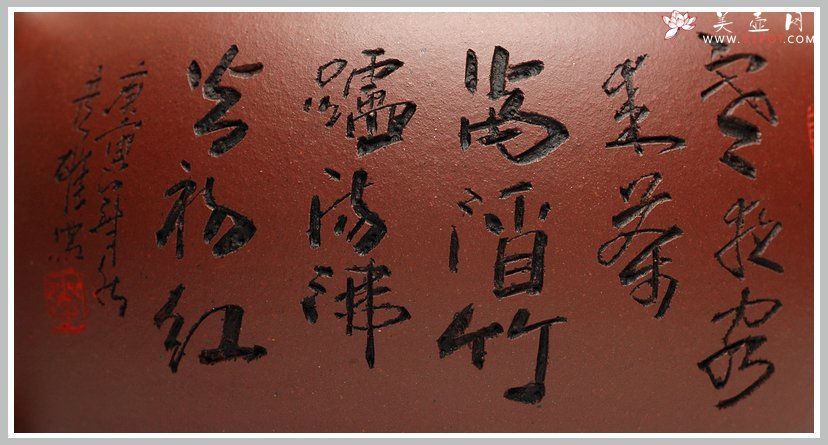 美壶网
寒夜客
来茶
当酒竹
炉汤沸
火初红
庚寅年秋